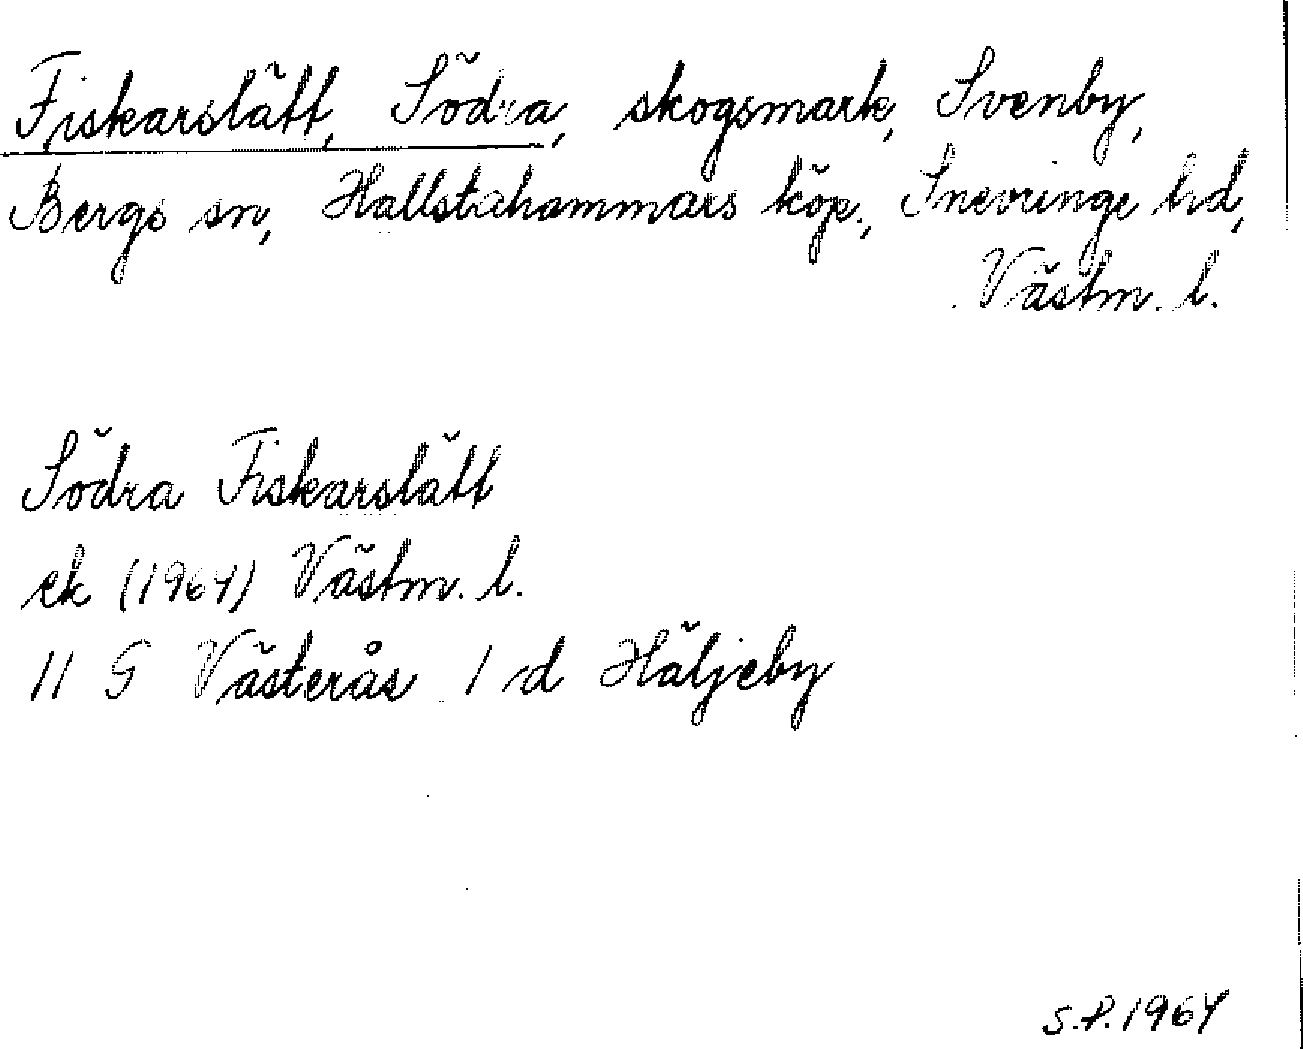 Fiskarslätt, Södra, skogsmark, Svenby,
Bergs sn, Hallstahammars köp., Snevringe hd,
Västm. l.
Södra Fiskarslätt
ek (1964) Västm. l.
11 G Västerås 1 d Häljeby
S.P. 1964